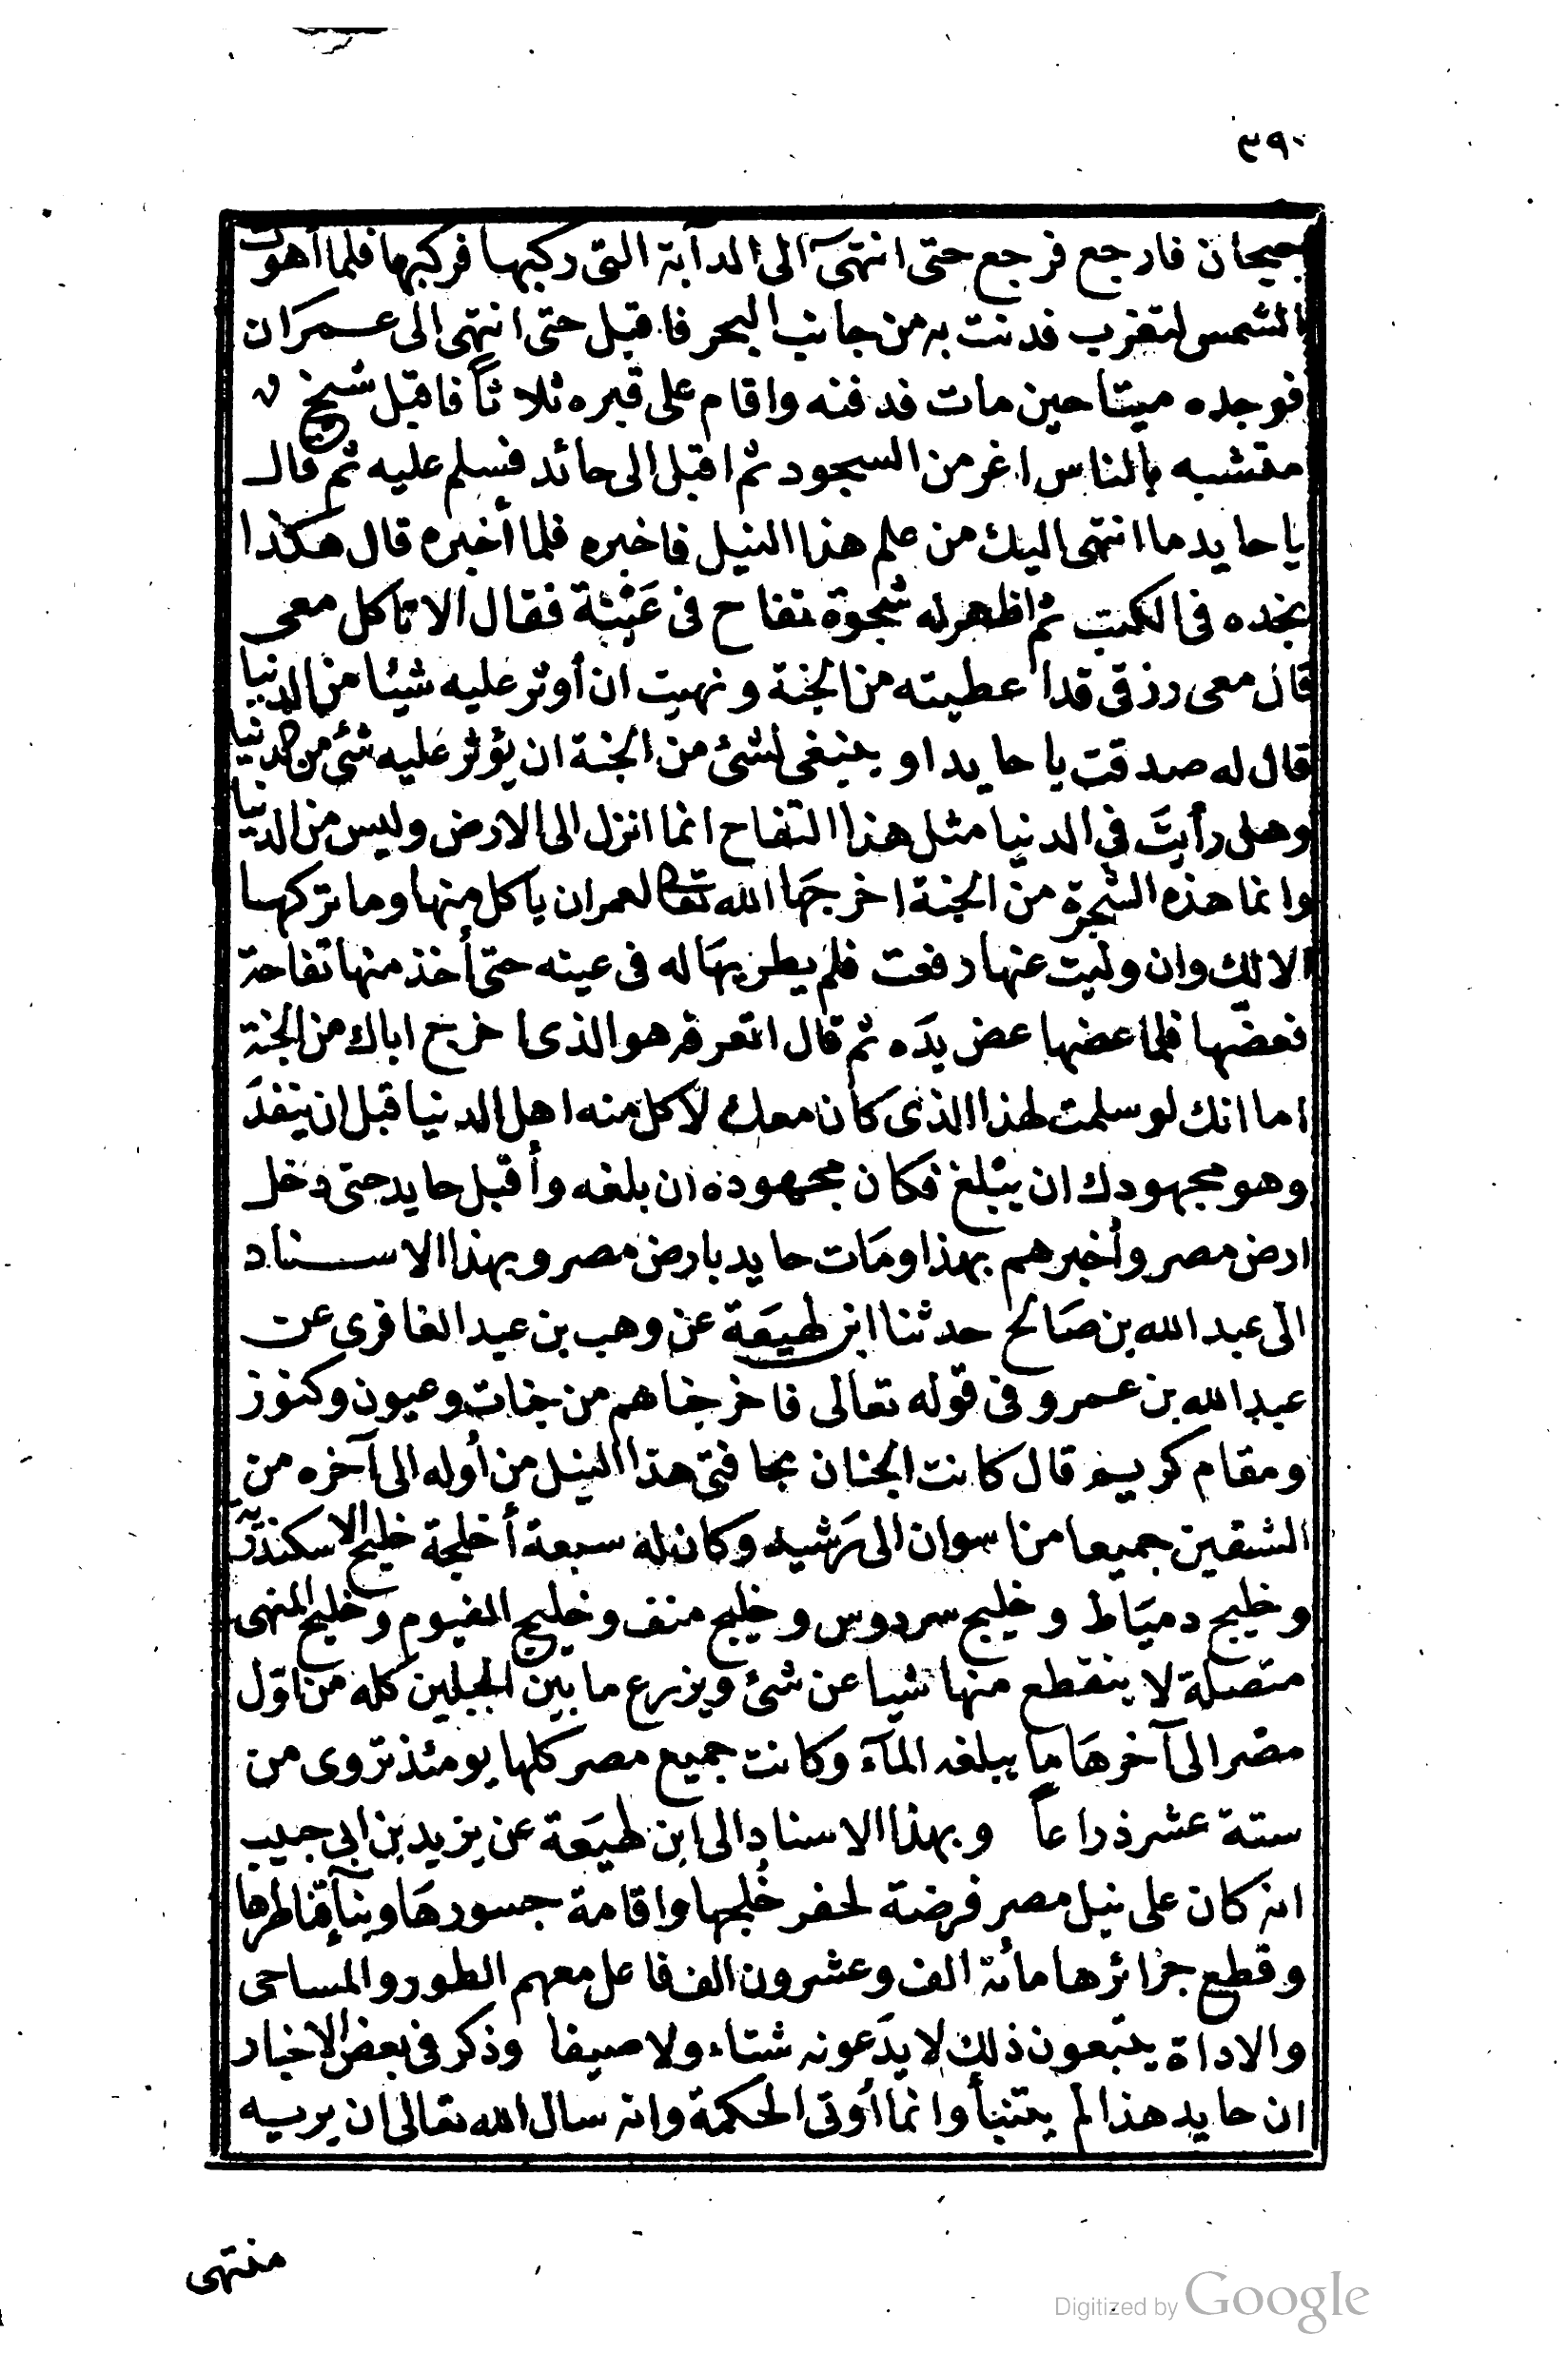 ٣٩٠
جيحان فارجع فرجع حتى انتهىَ الى الدآبة التى ركبها فركبها فلما أهوت
الشمس لتغرب فدنت به من جانب البحر فاقبل حتى انتهى الى عمرَان
فوجده ميتا حين مات فدفنه واقام على قبره ثلاثاً فاقبل شيخ
متشبه بالناس اغر من السجود ثم اقبل الى حائد فسلم عليه ثم قال
يا حايد ما انتهى اليك من علم هذا النيل فاخبره فلما أخبره قال هكذا
نجده فى الكتب ثم اظهر له شجرة تفاح فى عَيْنه فقال الا تاكل معى
قال معى رزقى قد اعطيته من الجنة ونهيت ان أوثر عليه شيئا من الدنيا
قال له صدقت يا حايد او ينبغى لشئ من الجنة ان يؤثر عليه شئ من الدنيا
وهل رأيتَ في الدنيا مثل هذا التفاح انما انزل الى الارض وليس من الدنيا
وانما هذه الشجرة من الجنة اخرجهَا الله تعالى لعمران ياكل منها وما تركها
الا لك وان وليت عنها رفعت فلم يطريهَا له فى عينه حتى أخذ منها تفاحة
فعضّها فلما عضها عض يدَه ثم قال اتعرفه هو الذى اخرج اباك من الجنة
اما انك لو سلمت لهذا الذى كان معك لأكل منه اهل الدنيا قبل ان ينفدَ
وهو مجهودك ان يبلغ فكان مجهوده ان بلغه وأقبل حايد حتى دخل
ارض مصر وأخبرهم بهذا ومَات حايد بارض مصر وبهذا الاسناد
الى عبد الله بن صَالح حدثنا ابن لهيعَة عن وهب بن عبد الغافرى عن
عبد الله بن عمرو فى قوله تعالى فاخرجناهم من جنات وعيون وكنوز
ومقام كريم قال كانت الجنان بحافتى هذا النيل من أوله الى آخره من
الشقين جميعا من اسوان الى رَشيد وكان له سبعة أخلجة خليج الاسكندرية
وخليج دميَاط وخليج سردوس وخليج منف وخليج الفيوم وخليج المنهى
متصلة لا ينقطع منها شيا عن شئ ويزرع ما بين الجبلين كله من اوّل
مصر الى آخرهَا ما يبلغه المآء وكانت جميع مصر كلها يومئذ تروى من
ستة عشر ذراعاً وبهذا الاسناد الى ابن لهيعَة عن يزيد بن ابى حبيب
انه كان على نيل مصر فرضة لحفر خُلجها واقامة جسورهَا وبنآء قناطرها
وقطع جزائرها مائة الف وعشرون الف فاعل معهم الطور والمساحى
والاداة يتبعون ذلك لا يدَعونه شتاء ولا صيفا وذكر فى بعض الاخبار
ان حايد هذا لم يتنبأ وانما أوتى الحكمة وانه سال الله تعالى ان يريه
منتهى
Digitized by Google